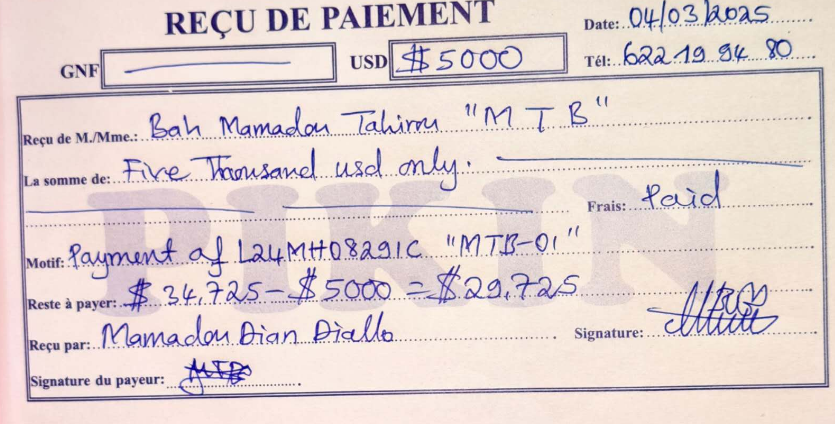 REÇU DE PAIEMENT
Date: 04/03/2025
GNF
USD $5000
Tél: 622 19 94 80
Reçu de M./Mme.: Bah Mamadou Tahirou "MTB"
La somme de: Five Thousand usd only.
Frais: Paid
PIKIN
Motif: Payment of L24MH08291C "MTB-01"
Reste à payer: $ 34,725 - $5000 = $29,725
Reçu par: Mamadou Dian Diallo
Signature:
Signature du payeur: MTB